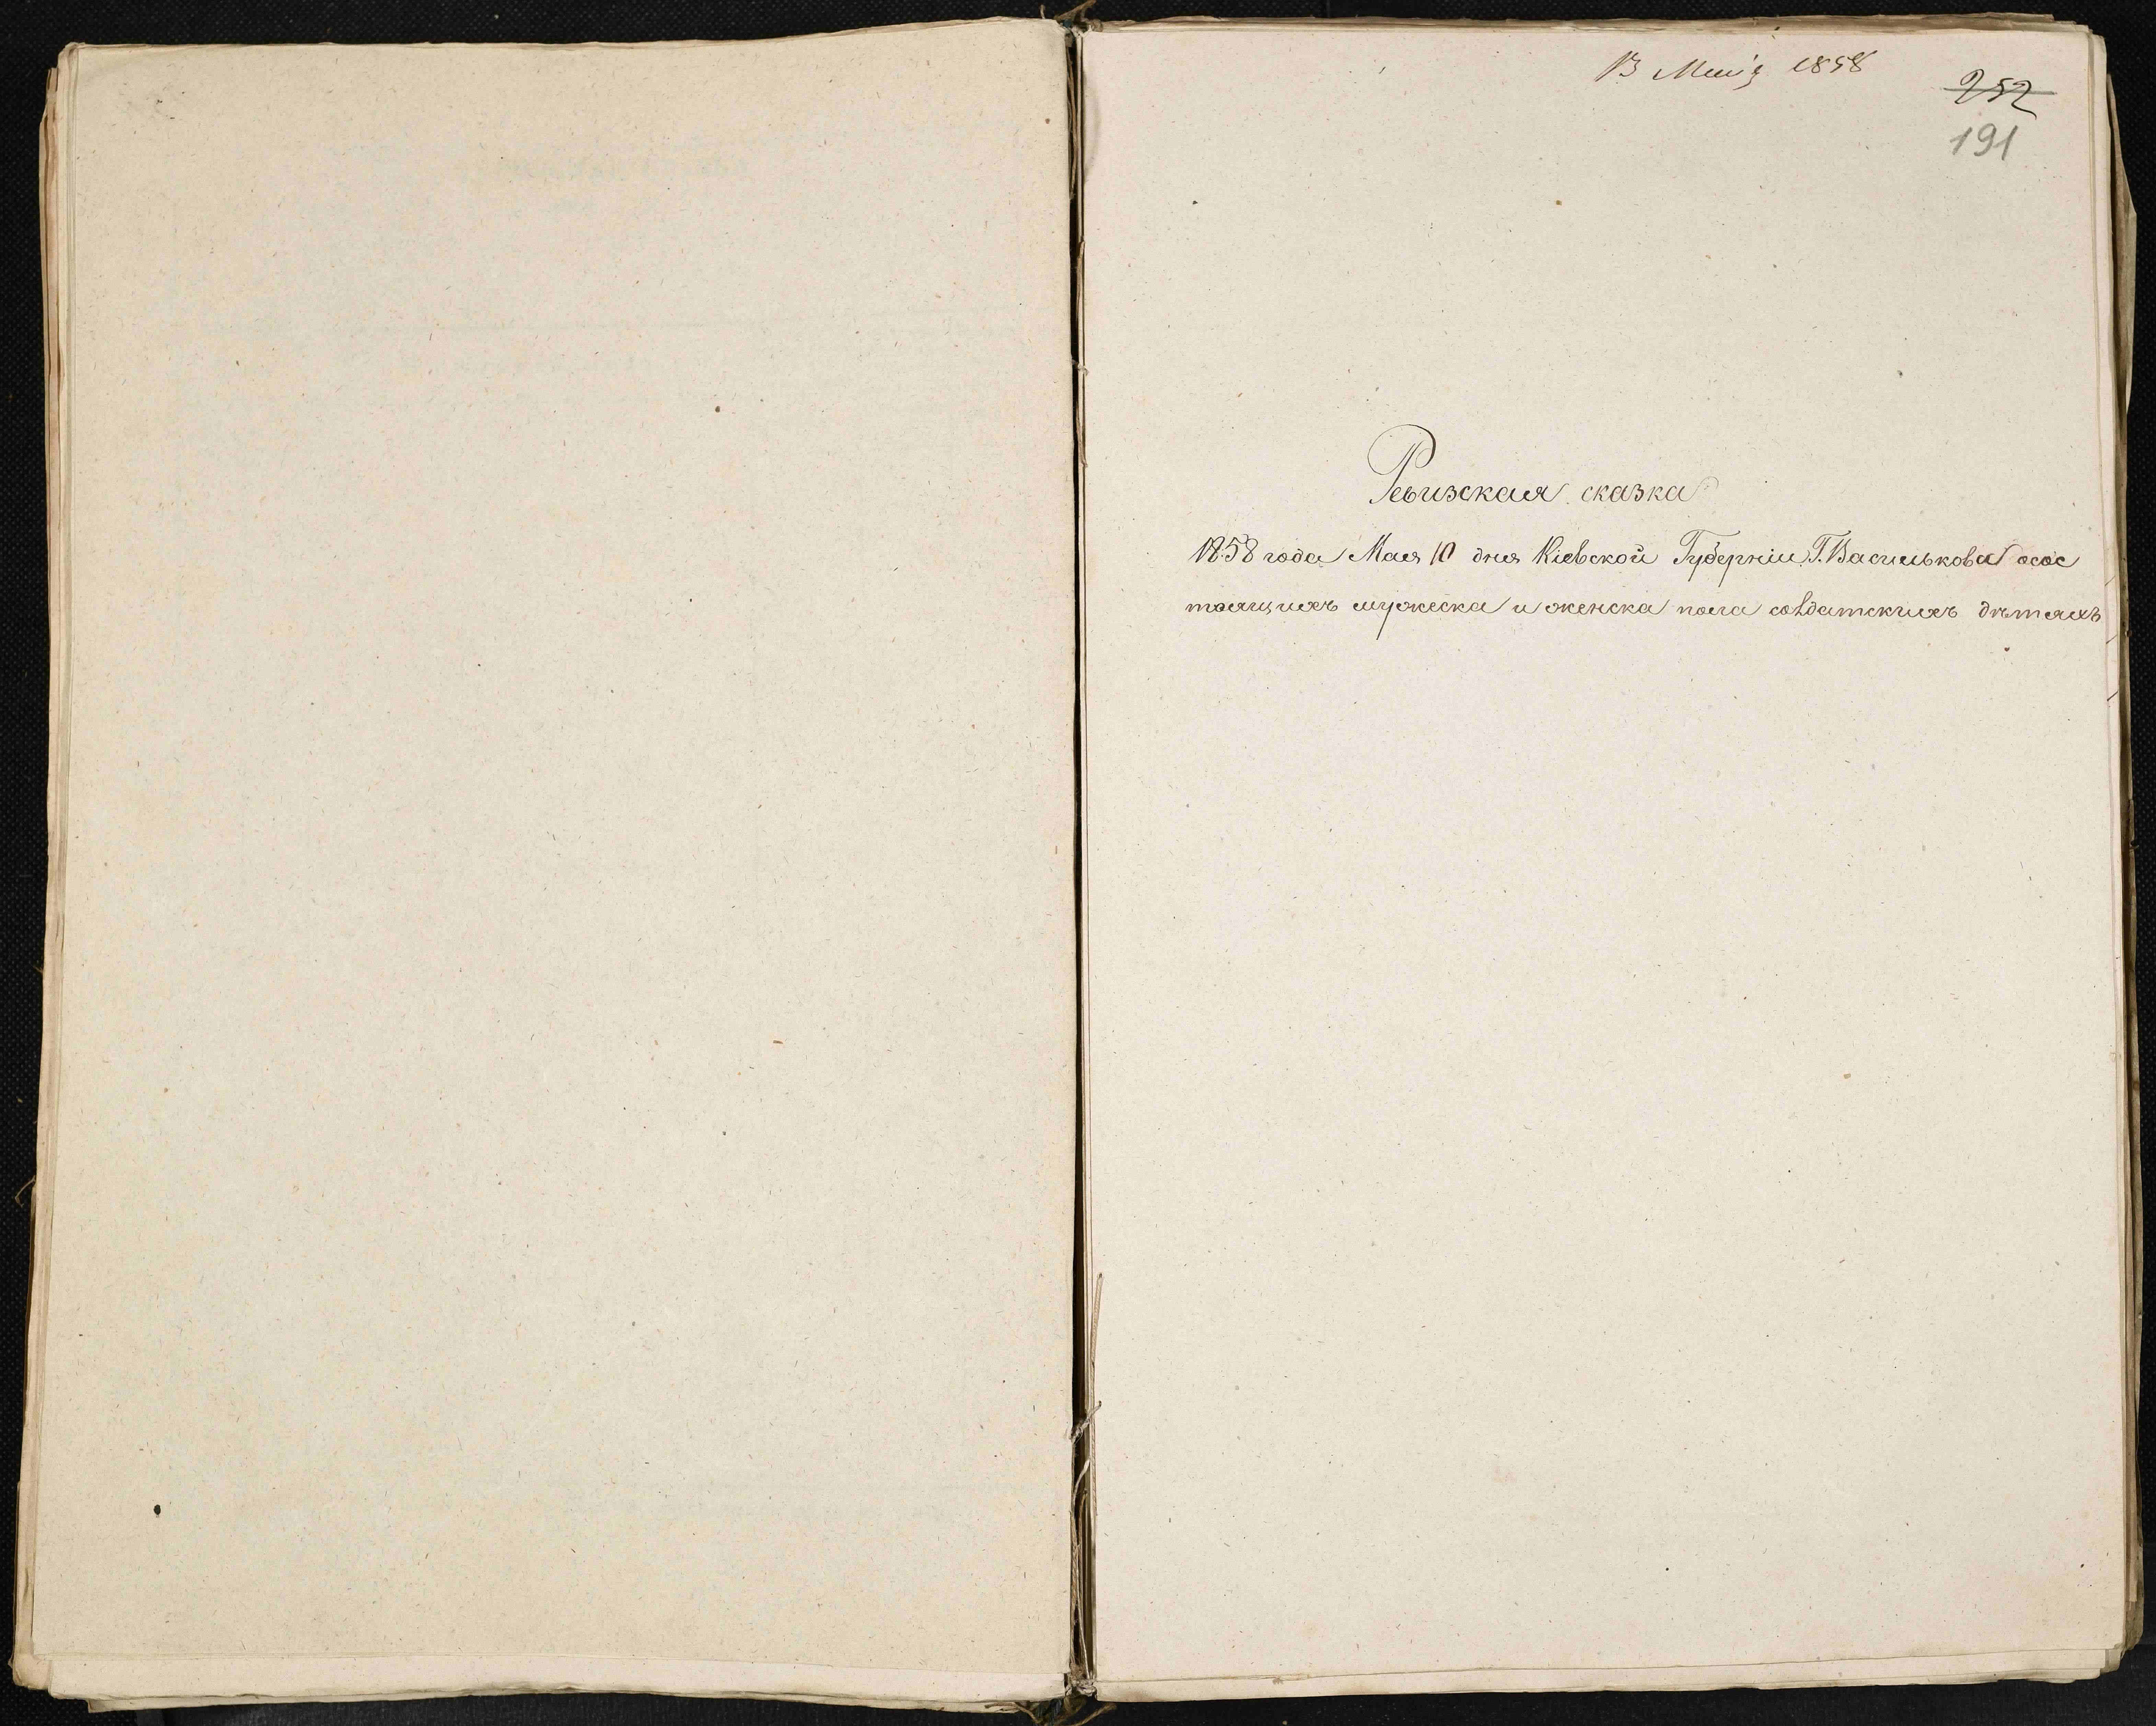 13 Маія 1858
252
191
Ревизская сказка
1858 года Мая 10 дня Кіевской Губерніи Г. Василькова осос
тоящихъ мужеска и женска пола солдатскихъ дѣтяхъ